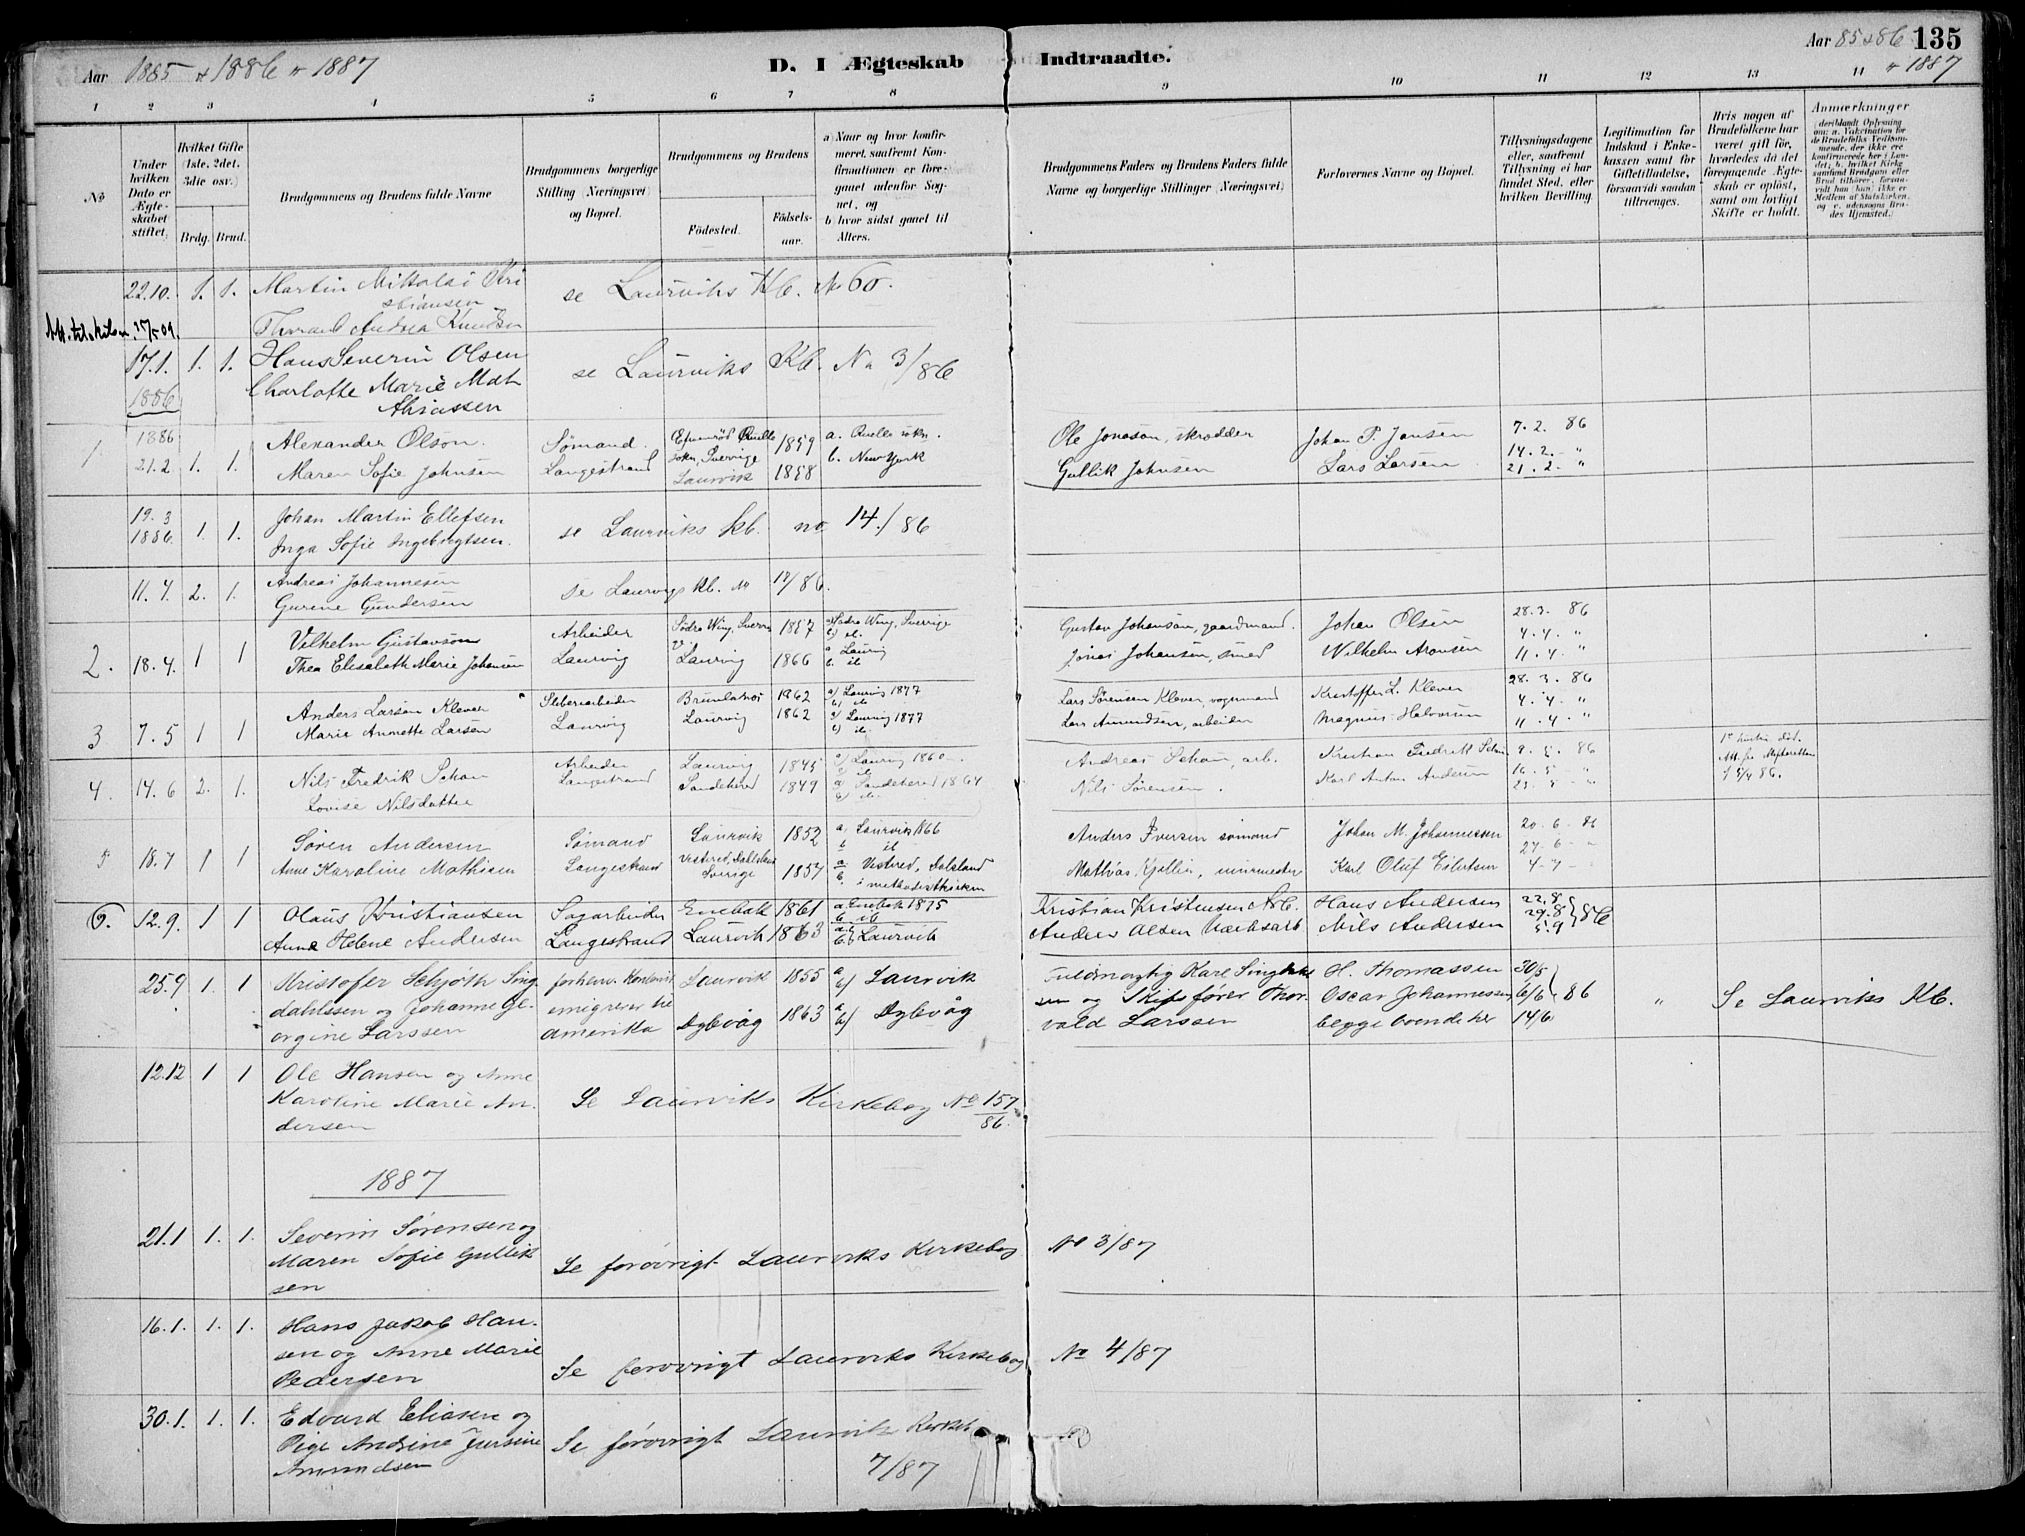 Aar 1885 & 1886 & 1887
D. I Ægteskab Indtraadte.
Aar 85 & 86 135
& 1887
1 2 3 4 5 6 7 8 9 10 11 12 13 14
No
Under hvilken Dato er Ægteskabet stiftet.
Hvilket Gifte (1ste, 2det, 3die osv.)
Brdg. Brud.
Brudgommens og Brudens fulde Navne
Brudgommens borgerlige Stilling (Næringsvei) og Bopæl.
Brudgommens og Brudens
Fødested.
Fødselsaar.
a) Naar og hvor konfirmeret, saafremt Konfirmationen er foregaaet udenfor Sognet, og
b) hvor sidst gaaet til Alters.
Brudgommens Faders og Brudens Faders fulde Navne og borgerlige Stillinger (Næringsvei)
Forlovernes Navne og Bopæl.
Tillysningsdagene eller, saafremt Tillysning ei har fundet Sted, efter hvilken Bevilling.
Legitimation for Indskud i Enkekassen samt for Giftetilladelse, forsaavidt saadan tiltrænges.
Hvis nogen af Brudefolkene har været gift før, hvorledes da det foregaaende Ægteskab er opløst, samt om lovligt Skifte er holdt.
Anmærkninger
22.10. 1. 1. Martin Nikolai Kristiansen
se Laurviks Kb. No 60.
Andrea Knudsen
17.1. 1. 1. Hans Severin Olsen
1886 Charlotte Marie Mathiassen
se Laurviks Kb. No 3/86
1 1886 21.2 1. 1. Alexander Olson. Sømand. 1859 a. Qville sokn. Ole Jonason, skrædder Johan P. Jansen 7. 2. 86
sokn, Sverrige b. New York 14. 2. "
Maren Sofie Johnsen Langestrand Laurvik 1858 Gullik Johnsen Lars Larsen 21. 2. "
19. 3 1886. 1. 1. Johan Martin Ellefsen
Inga Sofie Ingebrigtsen.
se Laurviks kb. no. 14./86
11. 4. 2. 1. Andreas Johannesen
Gurine Gundersen
se Laurvigs kb. No 17/86.
2. 18.4. 1 1 Vilhelm Gustavson Arbeider Södra Wing, Sverrige 1857 a) Södra Wing, Sverrige Gustav Johanson, gaardmand. Johan Olsen 28. 3. 86
b) it. 4. 4. "
Thea Elisabeth Marie Johansen Laurvig Laurvig 1866 a Laurvig Jonas Johansen, smed Wilhelm Aronsen 11. 4. "
b. it
3 7.5 1 1 Anders Larsen Klever Støberiarbeider Brunlanæs 1862 a) Laurvig 1877 Lars Sørensen Klever, vognmand Kristoffer L. Klever 28. 3. 86
4. 4. "
Marie Annette Larsen Laurvig Laurvig 1862 a) Laurvig 1877 Lars Amundsen, arbeider Magnus Halvorsen 11. 4. "
4. 14.6 2. 1. Nils Fredrik Schau Arbeider Laurvig 1845 a) Laurvig 1860 Andreas Schau, arb. Kristian Fredrik Schau 9. 5. 86
Langestrand b) it 16. 5 "
Lovise Nilsdatter Sandeherred 1849 a) Sandeherred 1864 Nils Sørensen. Karl Anton Andersen 23. 5 "
5 18.7 1 1 Søren Andersen Sømand Laurvik 1852 a) Laurvik 1866 Anders Iversen sømand Johan M. Johannessen 20. 6. 86
27. 6 "
Anne Karoline Mathisen Langestrand Vestred, Dalsland Sverige 1857 a Vestred, Dalsland Mathias Kjellin, murmester Karl Oluf Eilertsen 4. 7 "
b. i methodistkirken
6. 12.9. 1 1 Olaus Kristiansen Sagarbeider Enebak 1861 a Enebak 1875 Kristian Kristensen Arb. Hans Andersen 22.8
b. it 29.8 } 86
Anna Helene Andersen Langestrand Laurvik 1863 Laurvik Anders Olsen Værksarb Nils Andersen 5.9
25.9 1. 1 Kristofer Schjøth Singdahlssen og Johanne Georgine Larssen
emigrerer til Amerika
Laurvik 1855 a b) Laurvik
Dybvåg 1863 a b) Dybvåg
Fuldmægtig Karl Singdahlsen og Skibsfører Thorvald Larssen
H. Thomassen
Oscar Johannessen
begge boende her
30/5
6/6 } 86
14/6
"
Se Laurviks Kb.
12.12 1 1 Ole Hansen og Anne Karoline Marie Andersen
Se Laurviks Kirkebog No 157/86.
1887
21.1 1. 1. Severin Sørensen og Maren Sofie Gulliksen
Se forøvrigt Laurviks Kirkebog No 3/87
16.1. 1. 1. Hans Jakob Hansen og Anne Marie Pedersen
Se forøvrigt Laurviks Kirkebog No 4/87
30.1. 1. 1. Edvard Eliasen og Pige Andrine Jursine Amundsen
Se forøvrigt Laurviks Kirkeb
7/87